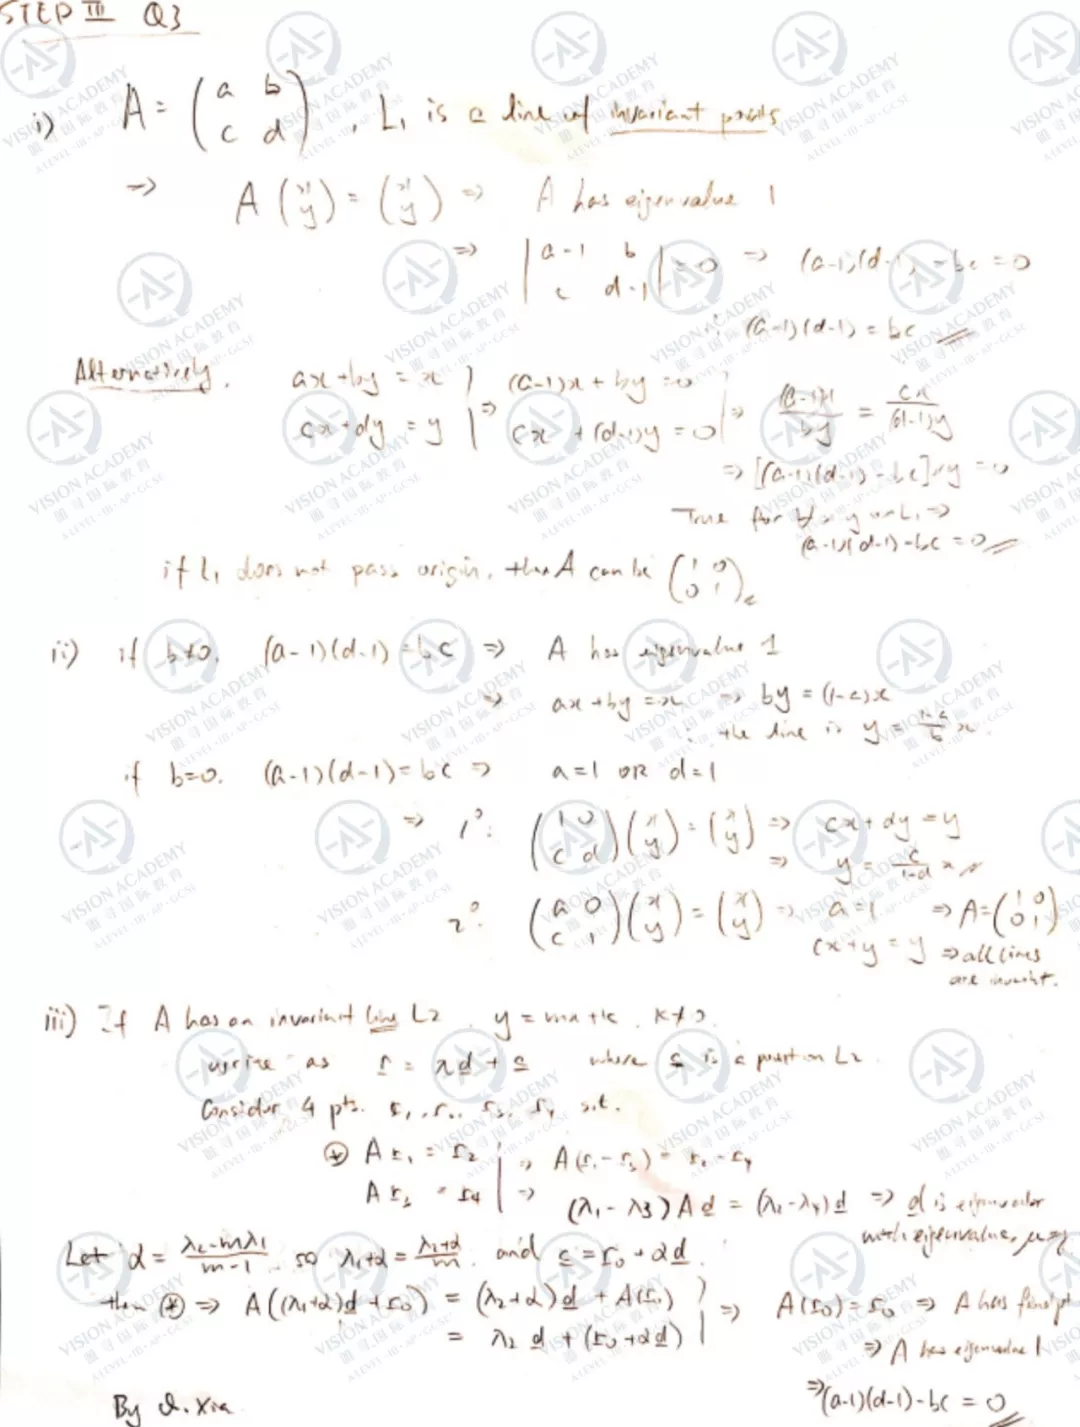 STEP III Q3
i) A = (a b
c d), L₁ is a line of invariant points
⇒ A(x
y) = (x
y) ⇒ A has eigenvalue 1
⇒ |a-1 b
c d-1| = 0 ⇒ (a-1)(d-1) - bc = 0
∴ (a-1)(d-1) = bc
Alternatively, ax + by = x
cx + dy = y } ⇒ (a-1)x + by = 0
cx + (d-1)y = 0 } ⇒ (a-1)x/by = cx/(d-1)y
⇒ [(a-1)(d-1) - bc]xy = 0
True for ∀ x, y on L₁ ⇒
(a-1)(d-1) - bc = 0
if L₁ does not pass origin, then A can be (1 0
0 1)
ii) if b≠0, (a-1)(d-1) = bc ⇒ A has eigenvalue 1
⇒ ax + by = x ⇒ by = (1-a)x
∴ the line is y = (1-a)/b x
if b=0. (a-1)(d-1) = bc ⇒ a=1 OR d=1
⇒ 1°: (1 0
c d)(x
y) = (x
y) ⇒ cx + dy = y
⇒ y = c/(1-d) x
2°: (a 0
c 1)(x
y) = (x
y) ⇒ a=1 ⇒ A = (1 0
0 1)
cx + y = y ⇒ all lines
are invariant.
iii) If A has an invariant line L₂ y = mx + k. k≠0.
write as r = λd + c where c is a point on L₂
Consider 4 pts. r₁, r₂, r₃, r₄ s.t.
⊛ A r₁ = r₂
A r₃ = r₄ | ⇒ A(r₁ - r₃) = r₂ - r₄
⇒ (λ₁ - λ₃) A d = (λ₂ - λ₄) d ⇒ d is eigenvector
with eigenvalue,
Let α = (λ₂ - mλ₁)/(m-1) so λ₁+α = (λ₂+α)/m and c = r₀ + αd.
then ⊛ ⇒ A((λ₁+α)d + r₀) = (λ₂+α)d + A(r₀)
= λ₂ d + (r₀ + αd) } ⇒ A(r₀) = r₀ ⇒ A has
⇒ A has eigenvalue 1
⇒ (a-1)(d-1) - bc = 0
By J. Xia
VISION ACADEMY
A-LEVEL·IB·AP·GCSE